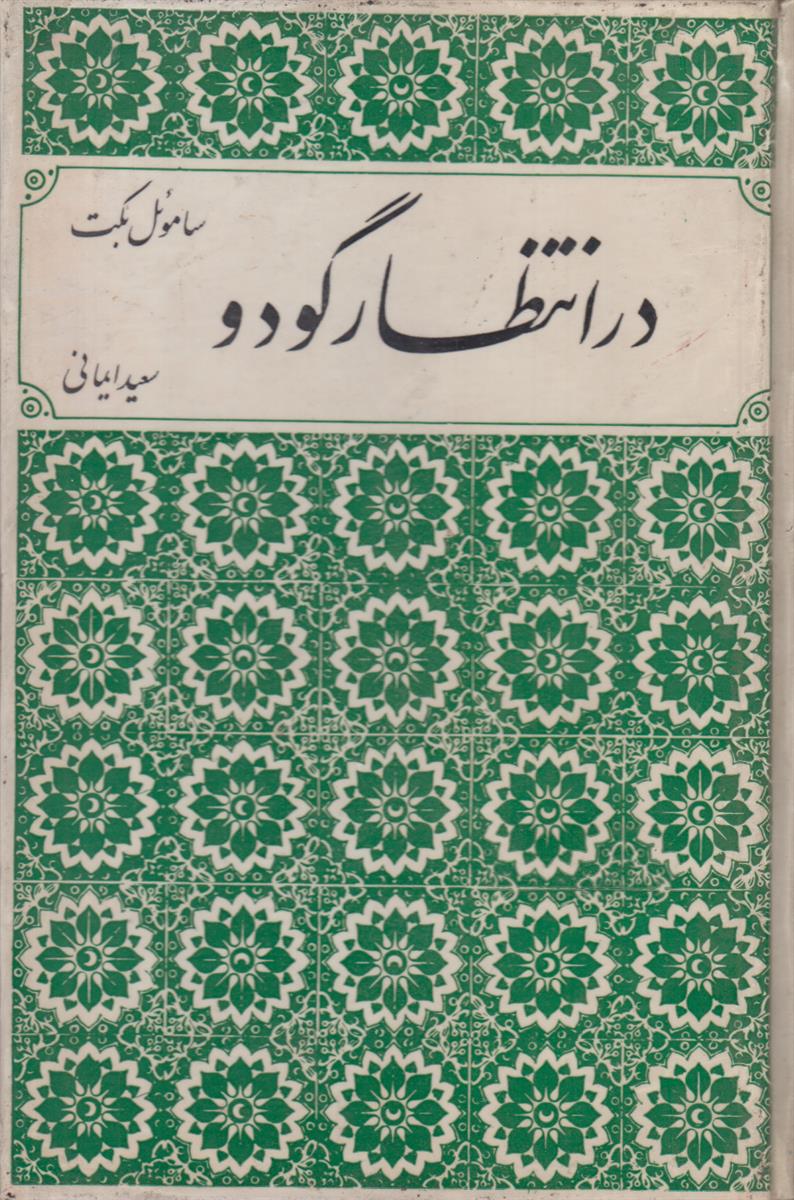 ساموئل بکت
در انتظار گودو
سعید ایمانی